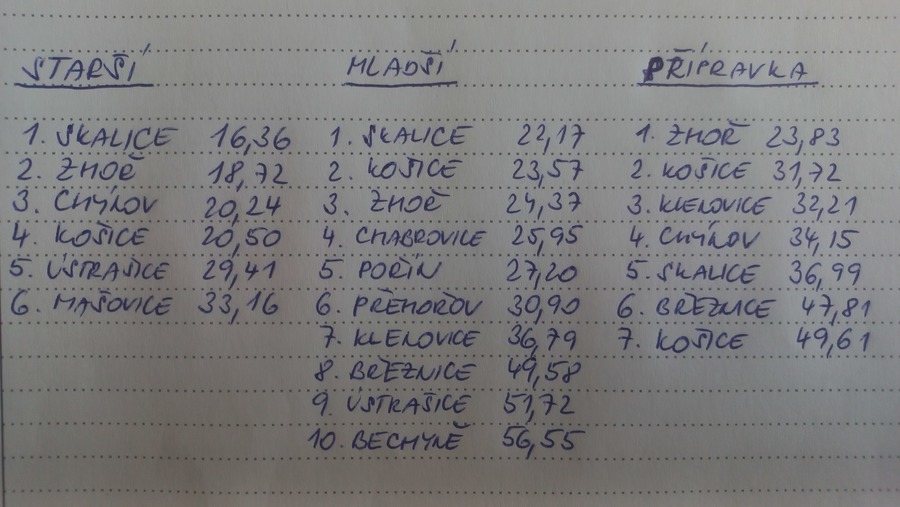 STARŠÍ MLADŠÍ PŘÍPRAVKA
1. SKALICE 16,36 1. SKALICE 22,17 1. ZHOŘ 23,83
2. ZHOŘ 18,72 2. KOŠICE 23,57 2. KOŠICE 31,72
3. CHÝNOV 20,24 3. ZHOŘ 24,37 3. KLENOVICE 32,21
4. KOŠICE 20,50 4. CHABROVICE 25,95 4. CHÝNOV 34,15
5. ÚSTRAŠICE 29,41 5. POŘÍN 27,20 5. SKALICE 36,99
6. MAŠOVICE 33,16 6. PŘEHOŘOV 30,90 6. BŘEZNICE 47,81
7. KLENOVICE 36,79 7. KOŠICE 49,61
8. BŘEZNICE 49,58
9. ÚSTRAŠICE 51,72
10. BECHYNĚ 56,55